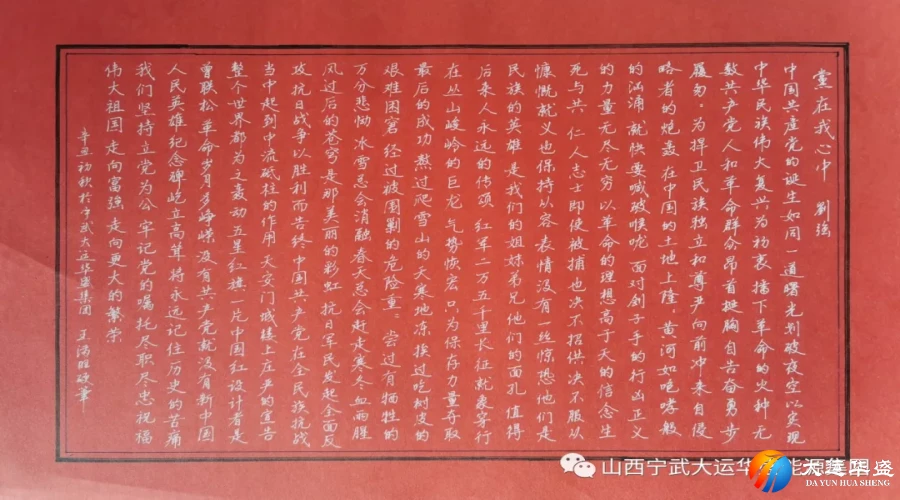 党在我心中 刘强
中国共产党的诞生如同一道曙光划破夜空以实现
中华民族伟大复兴为初衷播下革命的火种无
数共产党人和革命群众昂首挺胸自告奋勇步
履匆匆为捍卫民族独立和尊严向前冲来自侵
略者的炮轰在中国的土地上隆隆黄河如咆哮般
的汹涌就快要喊破喉咙面对刽子手的行凶正义
的力量无尽无穷以革命的理想高于天的信念生
死与共仁人志士即使被捕也决不招供决不服从
慷慨就义也保持从容表情没有一丝惊恐他们是
民族的英雄是我们的姐妹弟兄他们的面孔值得
后来人永远的传颂红军二万五千里长征就象穿行
在丛山峻岭的巨龙气势恢宏只为保存力量夺取
最后的成功熬过爬雪山的天寒地冻挨过吃树皮的
艰难困窘经过被围剿的危险重重尝过有牺牲的
万分悲恸冰雪总会消融春天总会赶走寒冬血雨腥
风过后的苍穹是那美丽的彩虹抗日军民发起全面反
攻抗日战争以胜利而告终中国共产党在全民族抗战
当中起到中流砥柱的作用天安门城楼上庄严的宣告
整个世界都为之轰动五星红旗一片中国红设计者是
曾联松革命岁月多峥嵘没有共产党就没有新中国
人民英雄纪念碑屹立高耸将永远记住历史的苦痛
我们坚持立党为公牢记党的嘱托尽职尽忠祝福
伟大祖国走向富强走向更大的繁荣
辛丑初秋于宁武大运华盛集团 王
山西宁武大运华盛能源集团
大运华盛
DA YUN HUA SHENG